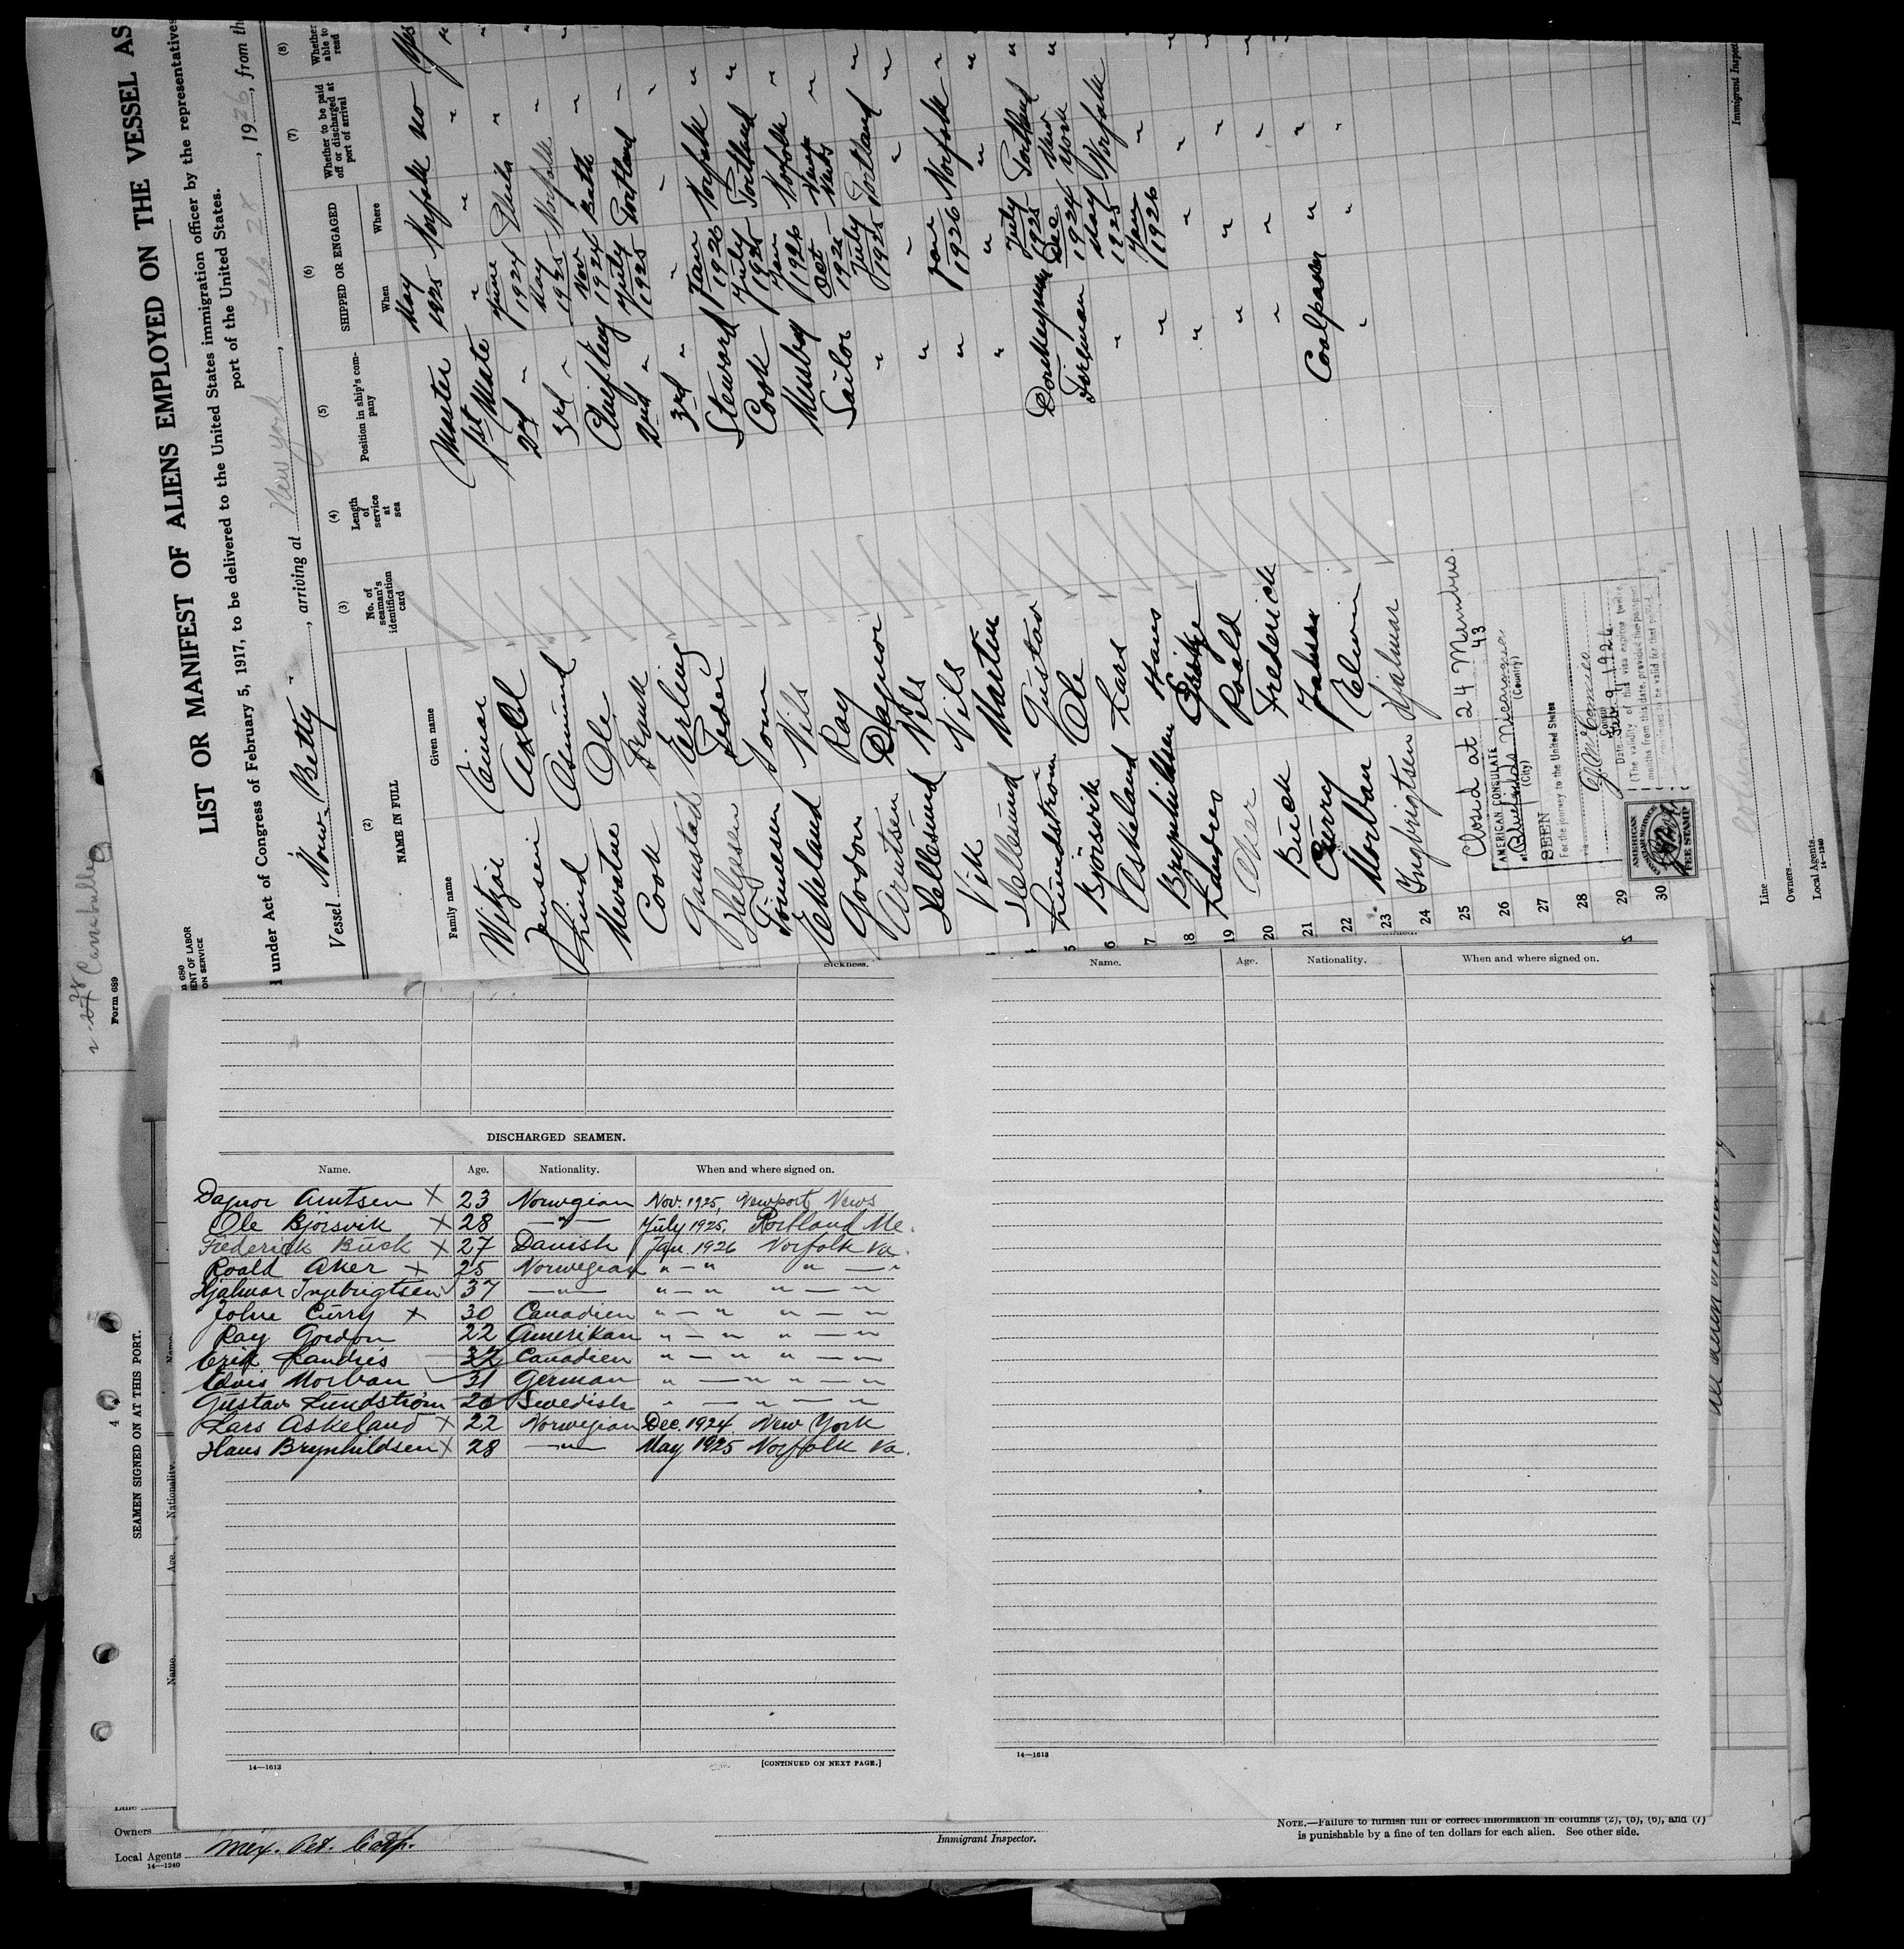 LIST OR MANIFEST OF ALIENS EMPLOYED ON THE VESSEL AS
under Act of Congress of February 5, 1917, to be delivered to the United States immigration officer by the representatives
port of the United States.
Vessel Norw. Betty, arriving at New York, Feb 28, 1926, from th
(2) (3) (4) (5) (6) (7) (8)
NAME IN FULL
No. of seaman's identification card
Length of service at sea
Position in ship's company
SHIPPED OR ENGAGED
Whether to be paid off or discharged at port of arrival
Whether able to read
Family name Given name When Where
Einar Master May 1925 Norfolk no Yes
Jensen Axel 1st Mate " " " "
Lind Asmund 2nd " June 1924 Phila " "
Ole 3rd " May 1925 Norfolk " "
Cook Frank Chief Eng Nov 1924 Bath " "
Gamstad Erling 2nd " July 1925 Portland " "
Helgesen Peder 3rd " " " "
Tönnesen Tom Steward Jan 1926 Norfolk "
Nils Cook July 1925 Portland "
Gordon Ray Messboy Jan 1926 Norfolk "
Arntsen Dagnor Sailor Oct 1925 Newp News "
Hellesund Nils " July 1925 Portland "
Vik Nils " " " "
Hellesund Marten " Jan 1926 Norfolk "
Lundström Gustav " " " "
Björsvik Ole Donkeyman July 1925 Portland "
Askeland Lars Fireman Dec 1924 New York "
Brynhildsen Hans " May 1925 Norfolk
Landres " Jan 1926 "
Aker Roald " " "
Buck Frederick " " "
Curry Johan " " "
Morban Edwin Coalpasser " "
Ingbrigtsen Hjalmar " " "
5
6
7
18
19
20
21
22
23
24
25
26
27
28
29
30
Closed at 24 Members.
43
AMERICAN CONSULATE
at Bluefields Nicaragua
(City) (Country)
SEEN
For the journey to the United States
via
Consul
Date Feb. 9 1926
(The validity of this visa expires twelve
months from this date, provided the passport
continues to be valid for that period.)
AMERICAN
CONSULAR SERVICE
FEE STAMP
Line
Owners
Local Agents
14-1240
Immigrant Inspec
Form 689
680
ENT OF LABOR
ON SERVICE
Sickness.
DISCHARGED SEAMEN.
Name. Age. Nationality. When and where signed on.
Dagnor Arntsen X 23 Norwgian Nov. 1925, Newport News
Ole Björsvik X 28 —"— July 1925, Portland Me.
Frederick Buck X 27 Danish Jan 1926 Norfolk Va.
Roald Aker X 25 Norwegian " — " " — "
Hjalmar Ingebrigtsen 37 —"— " — " " — "
John Curry X 30 Canadien " — " " — "
Ray Gordon 22 Amerikan " — " " — "
Erik Landres 32 Canadien " — " " — "
Morban 31 German " — " " — "
Gustav Lundström 26 Swedish " — " — "
Lars Askeland X 22 Norwegian Dec. 1924. New York
Hans Brynhildsen X 28 —"— May 1925 Norfolk Va.
14—1613
[CONTINUED ON NEXT PAGE.]
Name. Age. Nationality. When and where signed on.
14—1613
4
SEAMEN SIGNED ON AT THIS PORT.
Name. Age. Nationality.
Line
Owners
Local Agents Mex. Pet. Corp.
14—1240
Immigrant Inspector.
NOTE.—Failure to furnish full or correct information in columns (2), (5), (6), and (7)
is punishable by a fine of ten dollars for each alien. See other side.